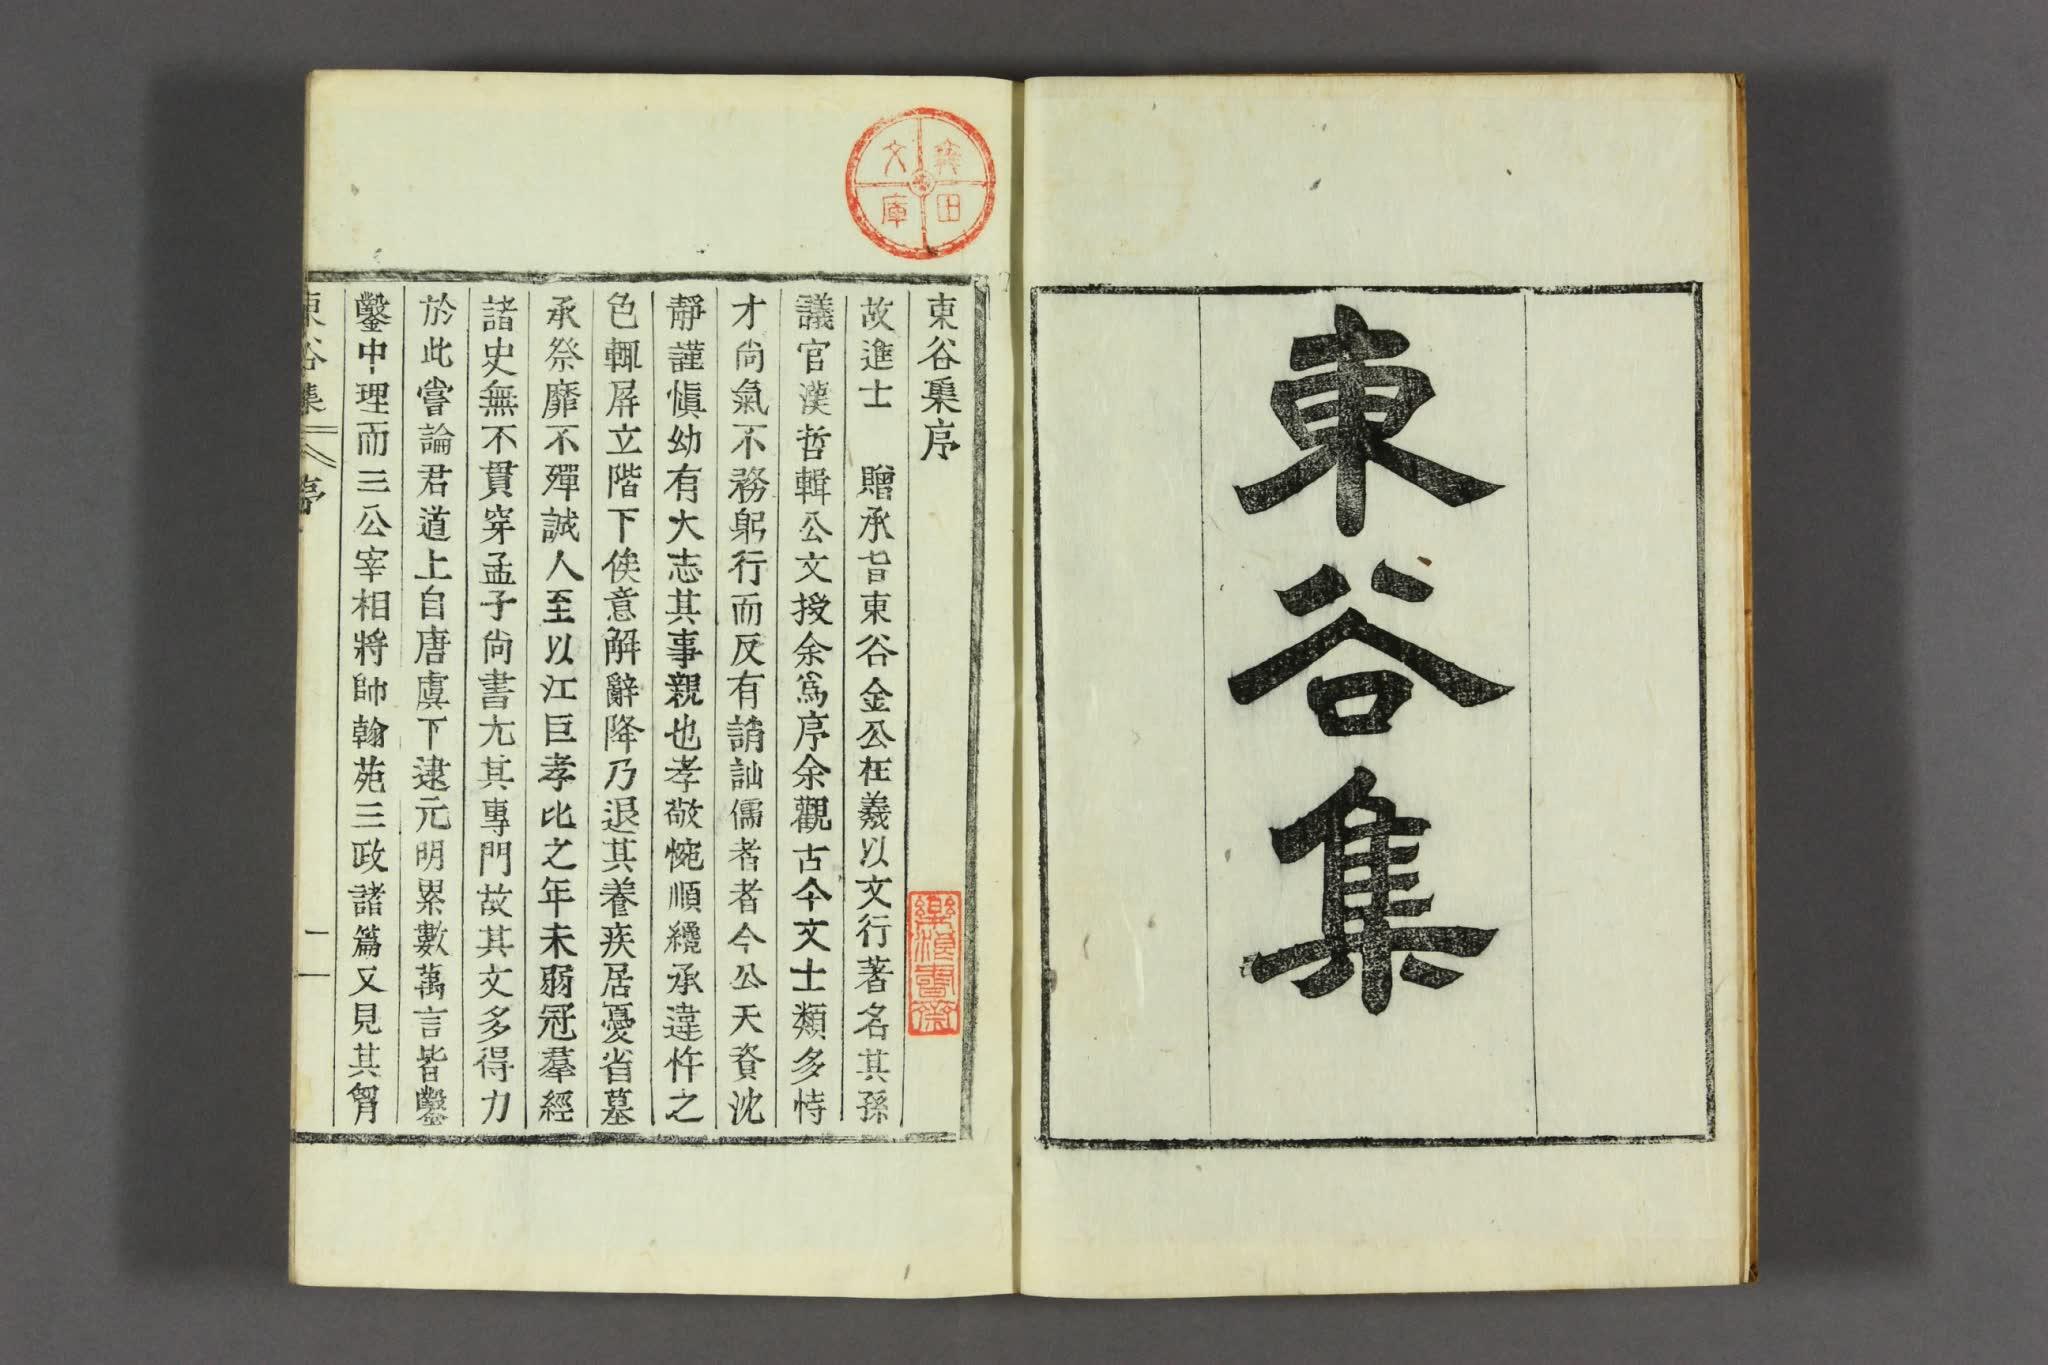 東谷集
東谷集序
故進士　贈承旨東谷金公在羲以文行著名其孫
議官漢哲輯公文授余爲序余觀古今文士類多恃
才尙氣不務躬行而反有誚訕儒者者今公天資沈
靜謹愼幼有大志其事親也孝敬惋順纔承違忤之
色輒屏立階下俟意解辭降乃退其養疾居憂省墓
承祭靡不殫誠人至以江巨孝比之年未弱冠羣經
諸史無不貫穿孟子尙書尤其專門故其文多得力
於此嘗論君道上自唐虞下逮元明累數萬言皆鑿
鑿中理而三公宰相將帥翰苑三政諸篇又見其胷
東谷集
序
一
文庫
樂浪書齋